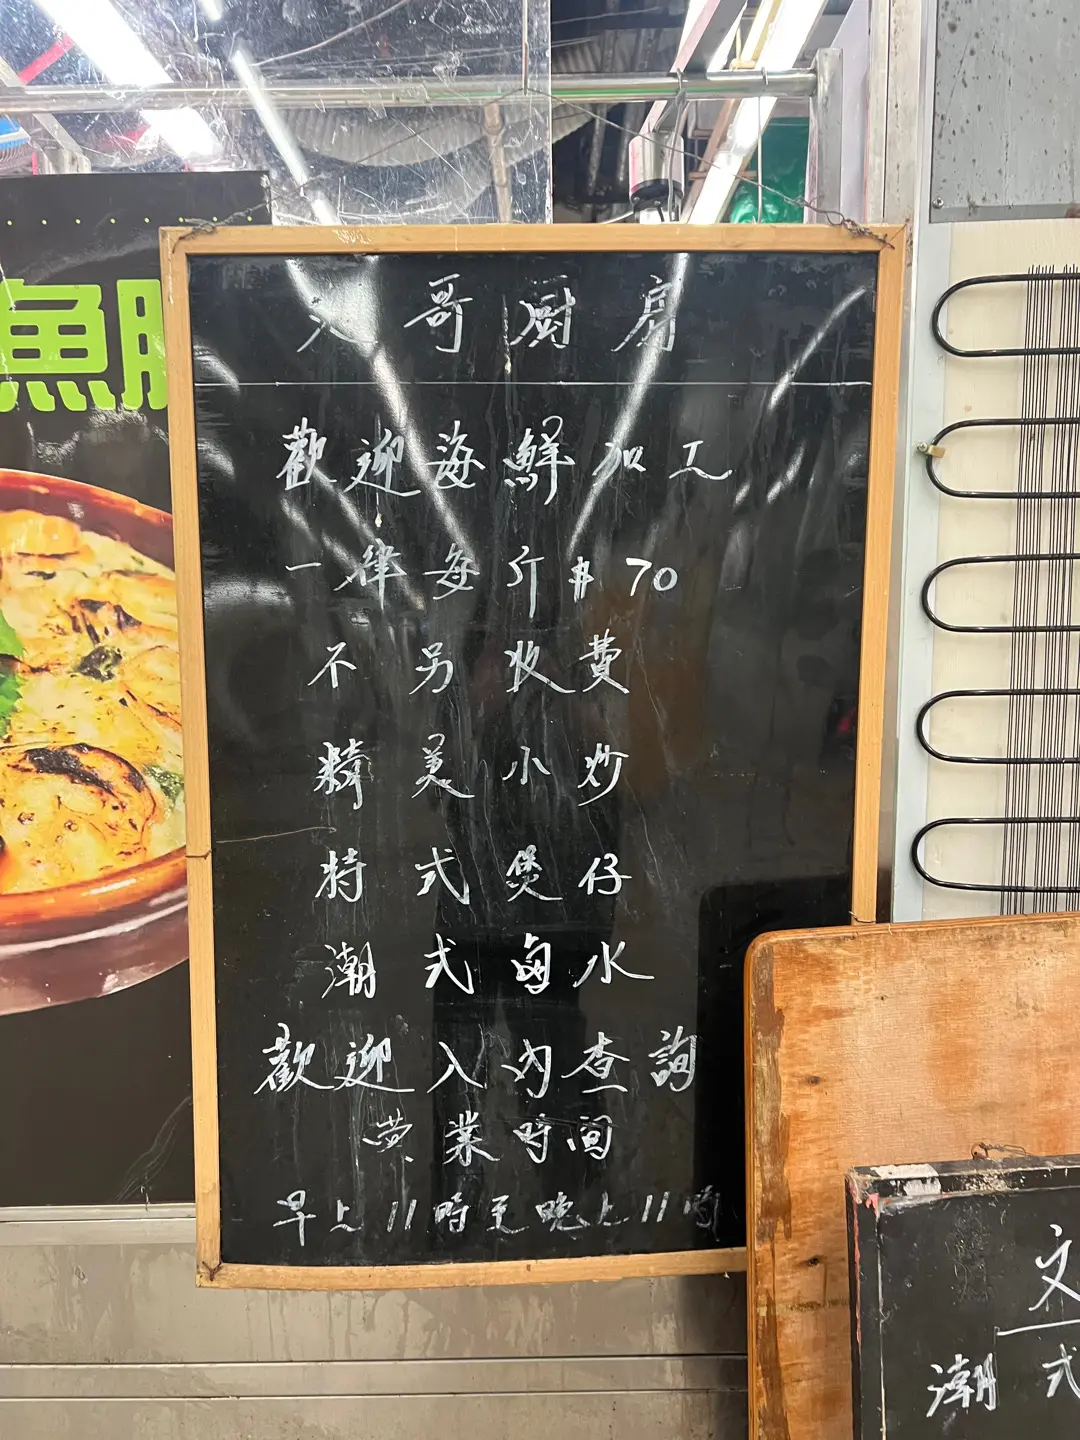 魚
文哥厨房
歡迎海鮮加工
一律每斤$70
不另收費
精美小炒
特式煲仔
潮式鹵水
歡迎入內查詢
营業时间
早上11時至晚上11時
文
潮式